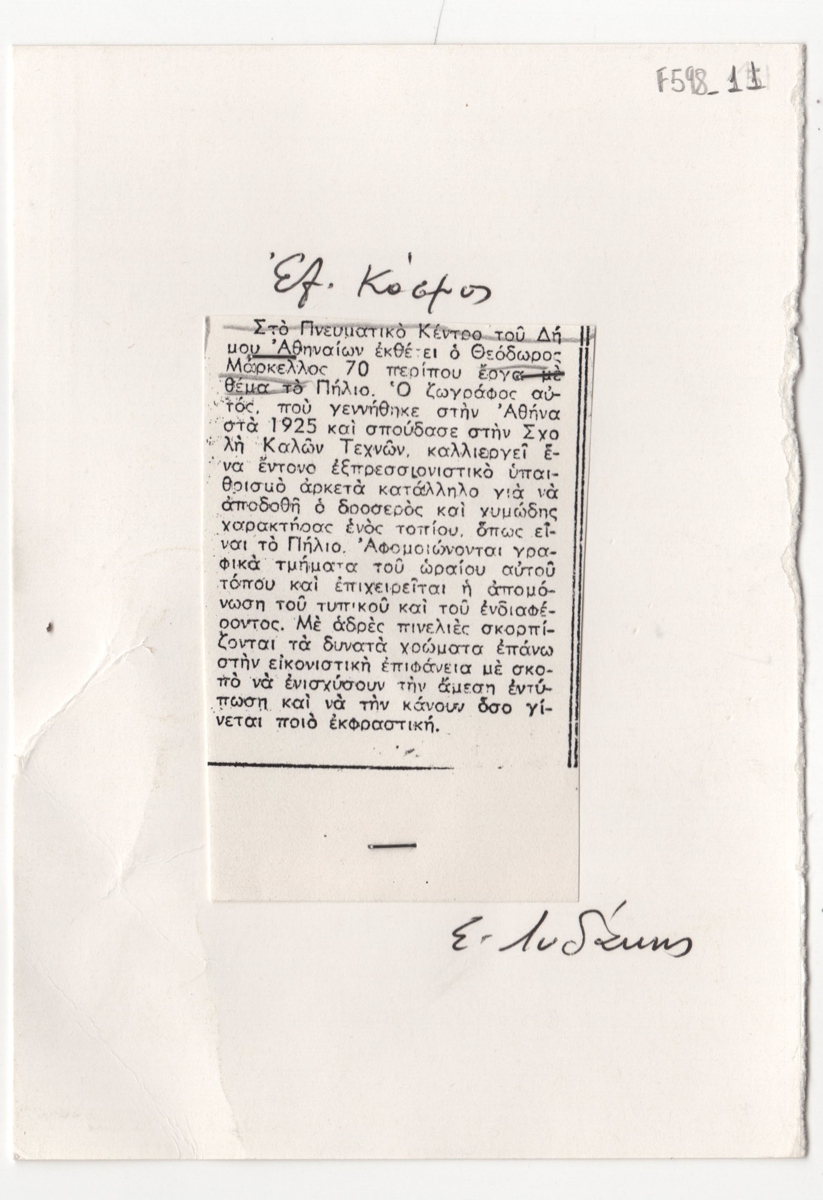 F598_11
Ἐφ. Κόσμος
Στὸ Πνευματικὸ Κέντρο τοῦ Δή
μου Ἀθηναίων ἐκθέτει ὁ Θεόδωρος
Μάρκελλος 70 περίπου ἔργα μὲ
θέμα τὸ Πήλιο. Ὁ ζωγράφος αὐ-
τός, ποὺ γεννήθηκε στὴν Ἀθήνα
στὰ 1925 καὶ σπούδασε στὴν Σχο
λὴ Καλῶν Τεχνῶν, καλλιεργεῖ ἕ-
να ἔντονο ἐξπρεσσιονιστικὸ ὑπαι-
θρισμὸ ἀρκετὰ κατάλληλο γιὰ νὰ
ἀποδοθῆ ὁ δροσερὸς καὶ χυμώδης
χαρακτήρας ἑνὸς τοπίου, ὅπως εἶ-
ναι τὸ Πήλιο. Ἀφομοιώνονται γρα-
φικὰ τμήματα τοῦ ὡραίου αὐτοῦ
τόπου καὶ ἐπιχειρεῖται ἡ ἀπομό-
νωση τοῦ τυπικοῦ καὶ τοῦ ἐνδιαφέ-
ροντος. Μὲ ἁδρὲς πινελιὲς σκορπί-
ζονται τὰ δυνατὰ χρώματα ἐπάνω
στὴν εἰκονιστικὴ ἐπιφάνεια μὲ σκο-
πὸ νὰ ἐνισχύσουν τὴν ἄμεση ἐντύ-
πωση καὶ νὰ τὴν κάνουν ὅσο γί-
νεται ποιὸ ἐκφραστική.
Σ. Λυδάκης